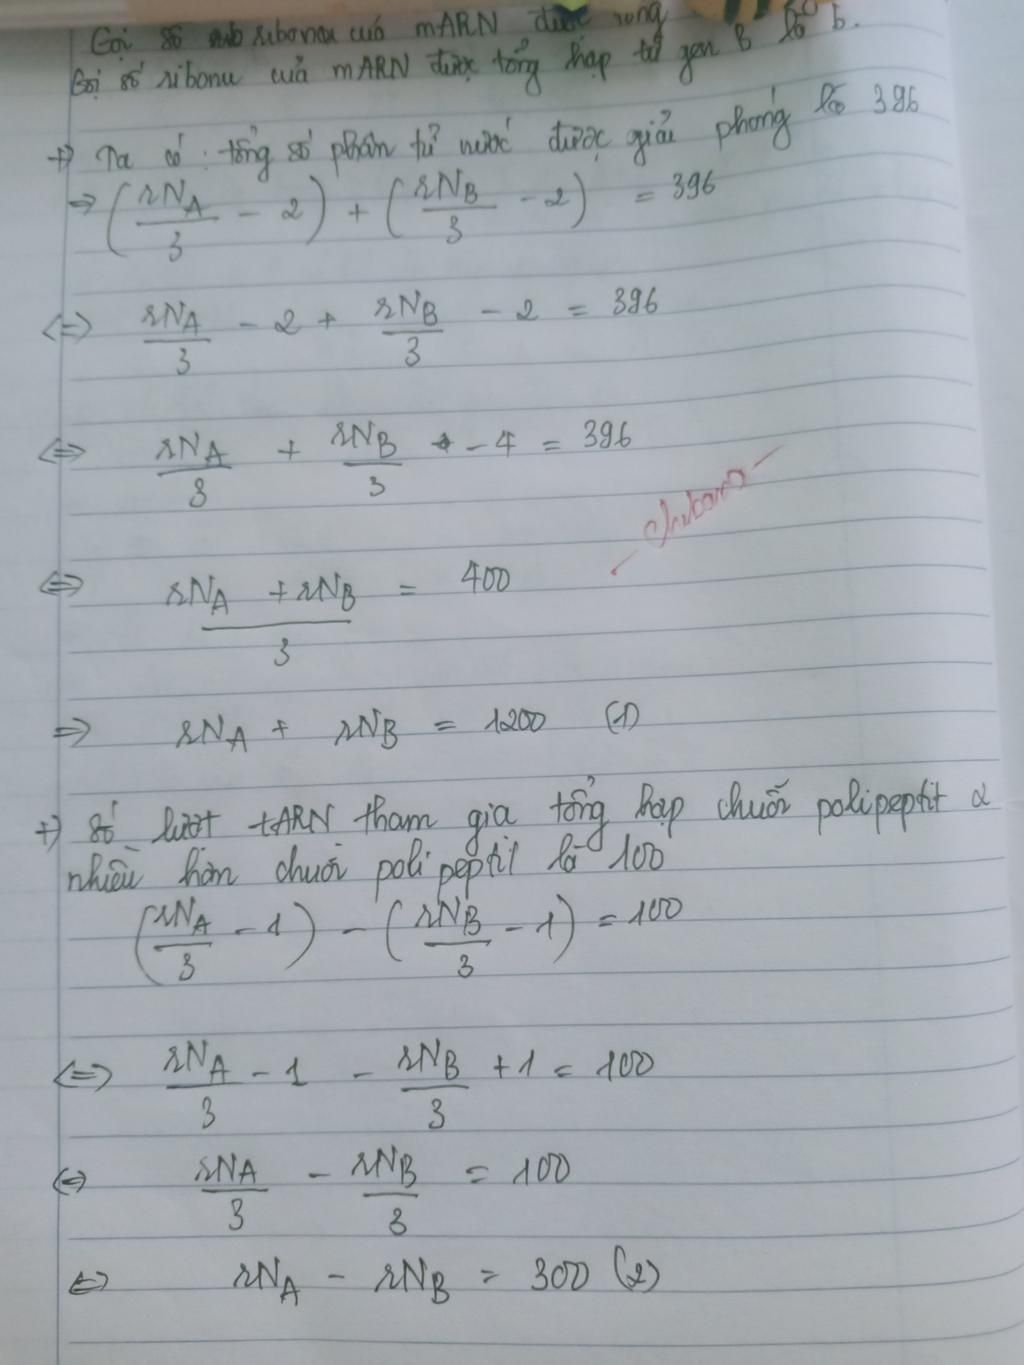 Gọi số ribonu của mARN được
Gọi số ribonu của mARN được tổng hợp từ gen B là b.
+) Ta có: tổng số phân tử nước được giải phóng là 396
=> (rN_A/3 - 2) + (rN_B/3 - 2) = 396
<=> rN_A/3 - 2 + rN_B/3 - 2 = 396
<=> rN_A/3 + rN_B/3 - 4 = 396
<=> (rN_A + rN_B)/3 = 400
=> rN_A + rN_B = 1200 (1)
+) Số lượt tARN tham gia tổng hợp chuỗi polipeptit α
nhiều hơn chuỗi polipeptit là 100
(rN_A/3 - 1) - (rN_B/3 - 1) = 100
<=> rN_A/3 - 1 - rN_B/3 + 1 = 100
<=> rN_A/3 - rN_B/3 = 100
<=> rN_A - rN_B = 300 (2)